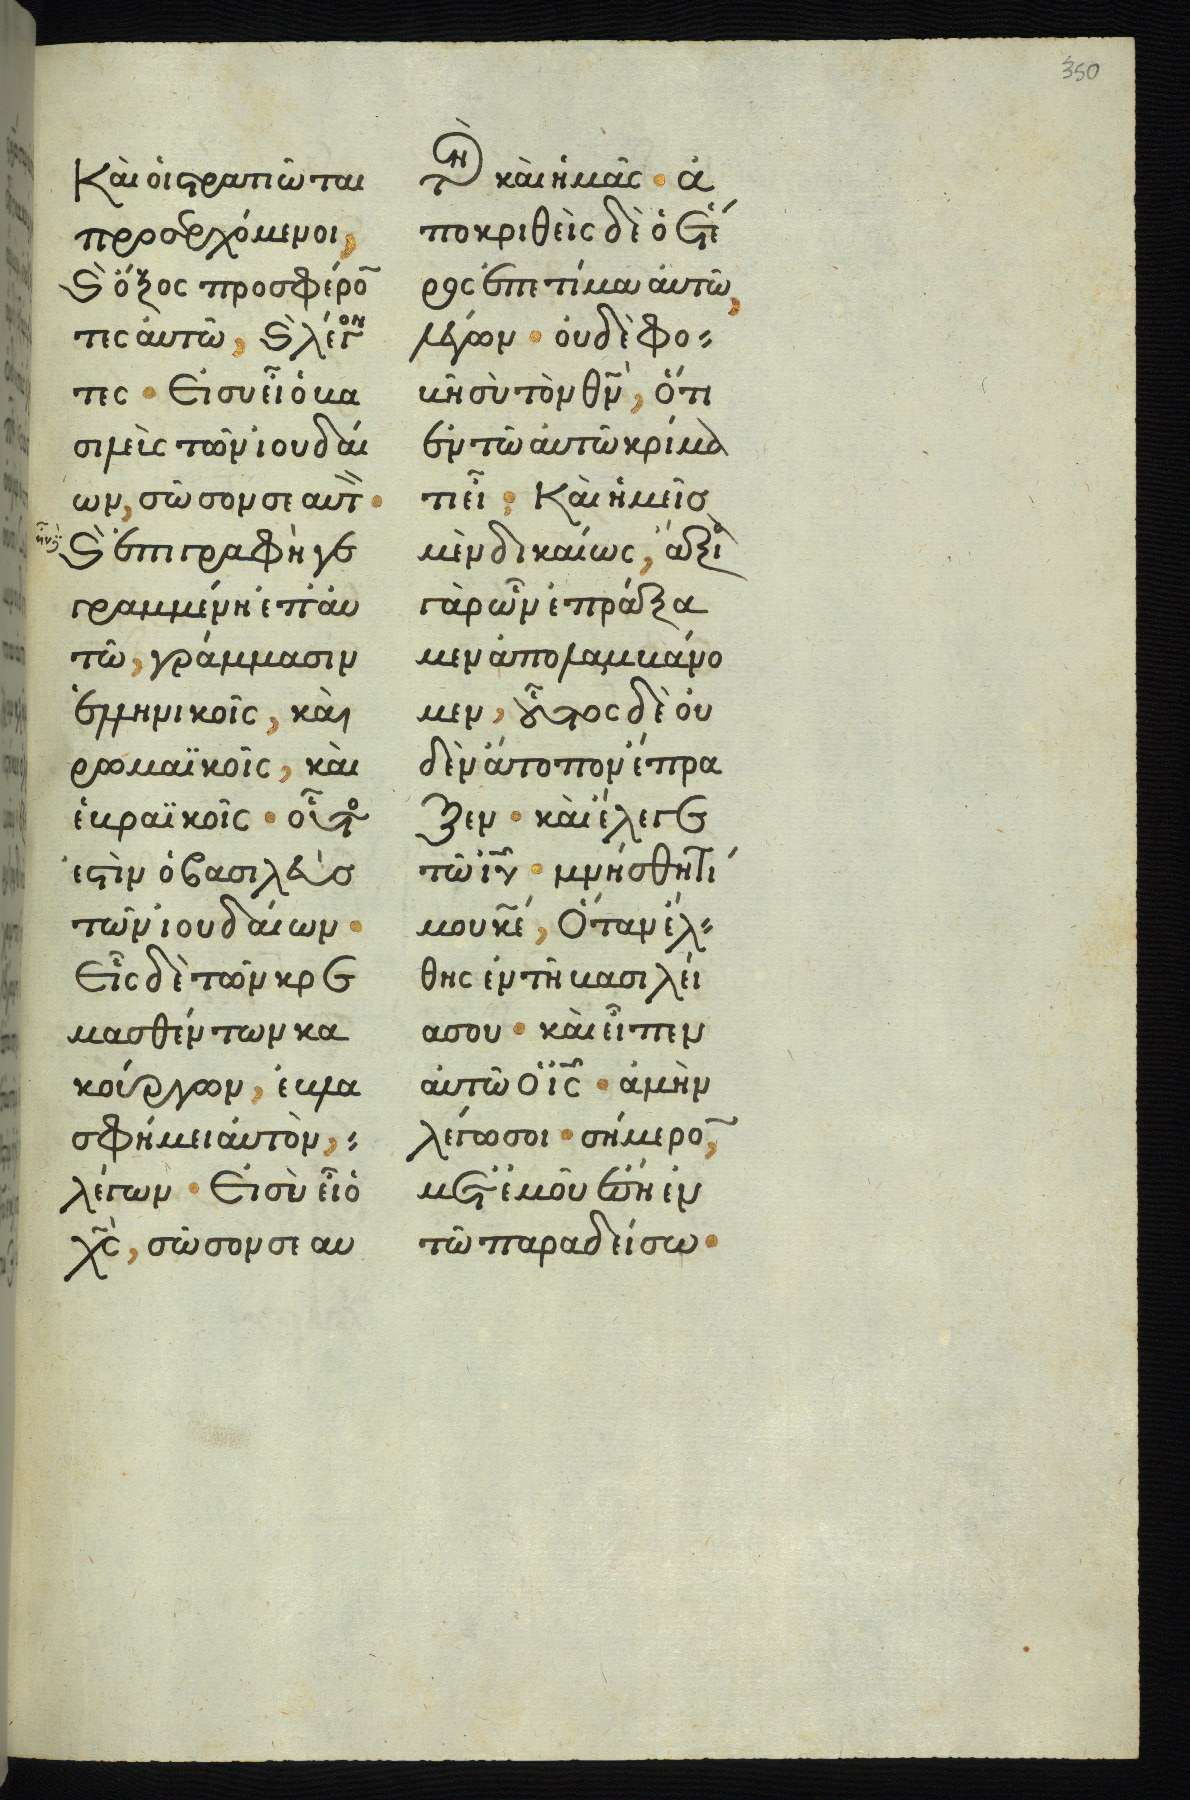 350
Καὶ οἱ στρατιῶται
προσερχόμενοι,
ϗ ὄξος προσφέρο͂
τες ἀυτῶ, ϗ λέγον
τες · Ει συ εἶ ὁ βα
σιλεὶς τῶν ϊουδαί
ων, σῶσον σεαυτ̀ ·
ϗ ἐπιγραφὴ γε
γραμμένη ἐπ' ἀυ
τῶ, γράμμασιν
ἑλληνικοῖς, κὰι
ρωμαϊκοῖς, κὰι
ἑβραϊκοῖς · οὗτος
ἐστὶν ὁ βασιλεὺσ
τῶν ϊουδαίων ·
Εἷς δὲ τῶν κρε
μασθέντων κα
κούργων, ἐβλα
σφήμει ἀυτὸν, :
λέγων · Ει σὺ εἶ ὁ
χ̅ς̀, σῶσον σεαυ
τὸν κὰι ἡμᾶς · ἀ
ποκριθεὶς δὲ ὁ ἕτε
ρος ἐπετίμα ἀυτῶ,
λέγων · ὀυδὲ φο:
βῆ σὺ τὸν θ̅ν̀, ὅτι
ἐν τῶ ἀυτῶ κρίμα
τι εἶ · Καὶ ἡμεῖσ
μὲν δικαίως, ἄξια
γὰρ ὧν ἐπράξα
μεν ἀπολαμβάνο
μεν, οὗτος δὲ ὀυ
δὲν ἄτοπον ἔπρα
ξεν · κὰι ἔλεγε
τῶ ι̅υ̅ · μνήσθητί
μου κ̅ε̅, Ὅταν ἔλ:
θης ἐν τῆ βασιλεί
α σου · κὰι εἶπεν
ἀυτῶ Ὁ ι̅ς̅ · ἀμὴν
λέγω σοι · σήμερο͂,
μετ' ἐμοῦ ἔση ἐν
τῶ παραδείσω ·